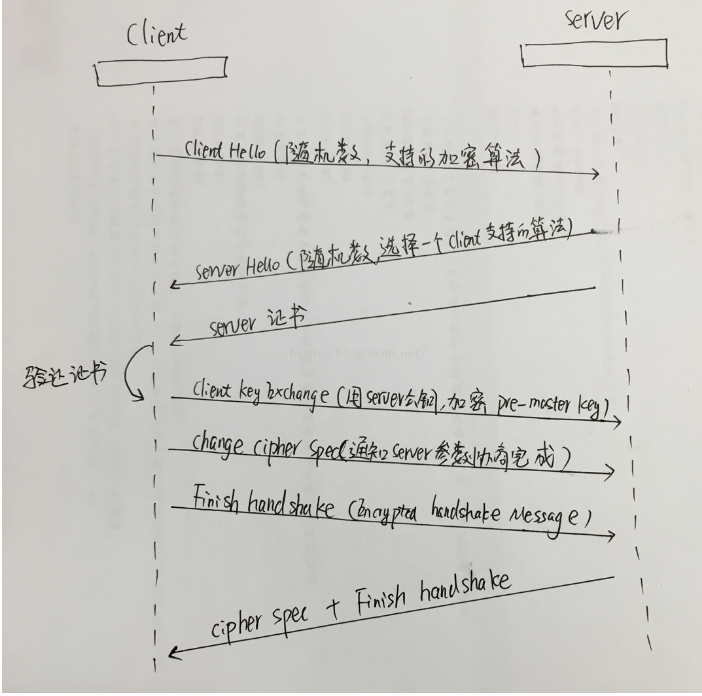 Client
server
Client Hello (随机数, 支持的加密算法)
server Hello (随机数,选择一个Client支持的算法)
server 证书
http://blog.csdn.net/
验证证书
Client key Exchange (用server公钥,加密 pre-master key)
change cipher spec(通知server参数协商完成)
Finish handshake (Encrypted handshake Message)
cipher spec + Finish handshake